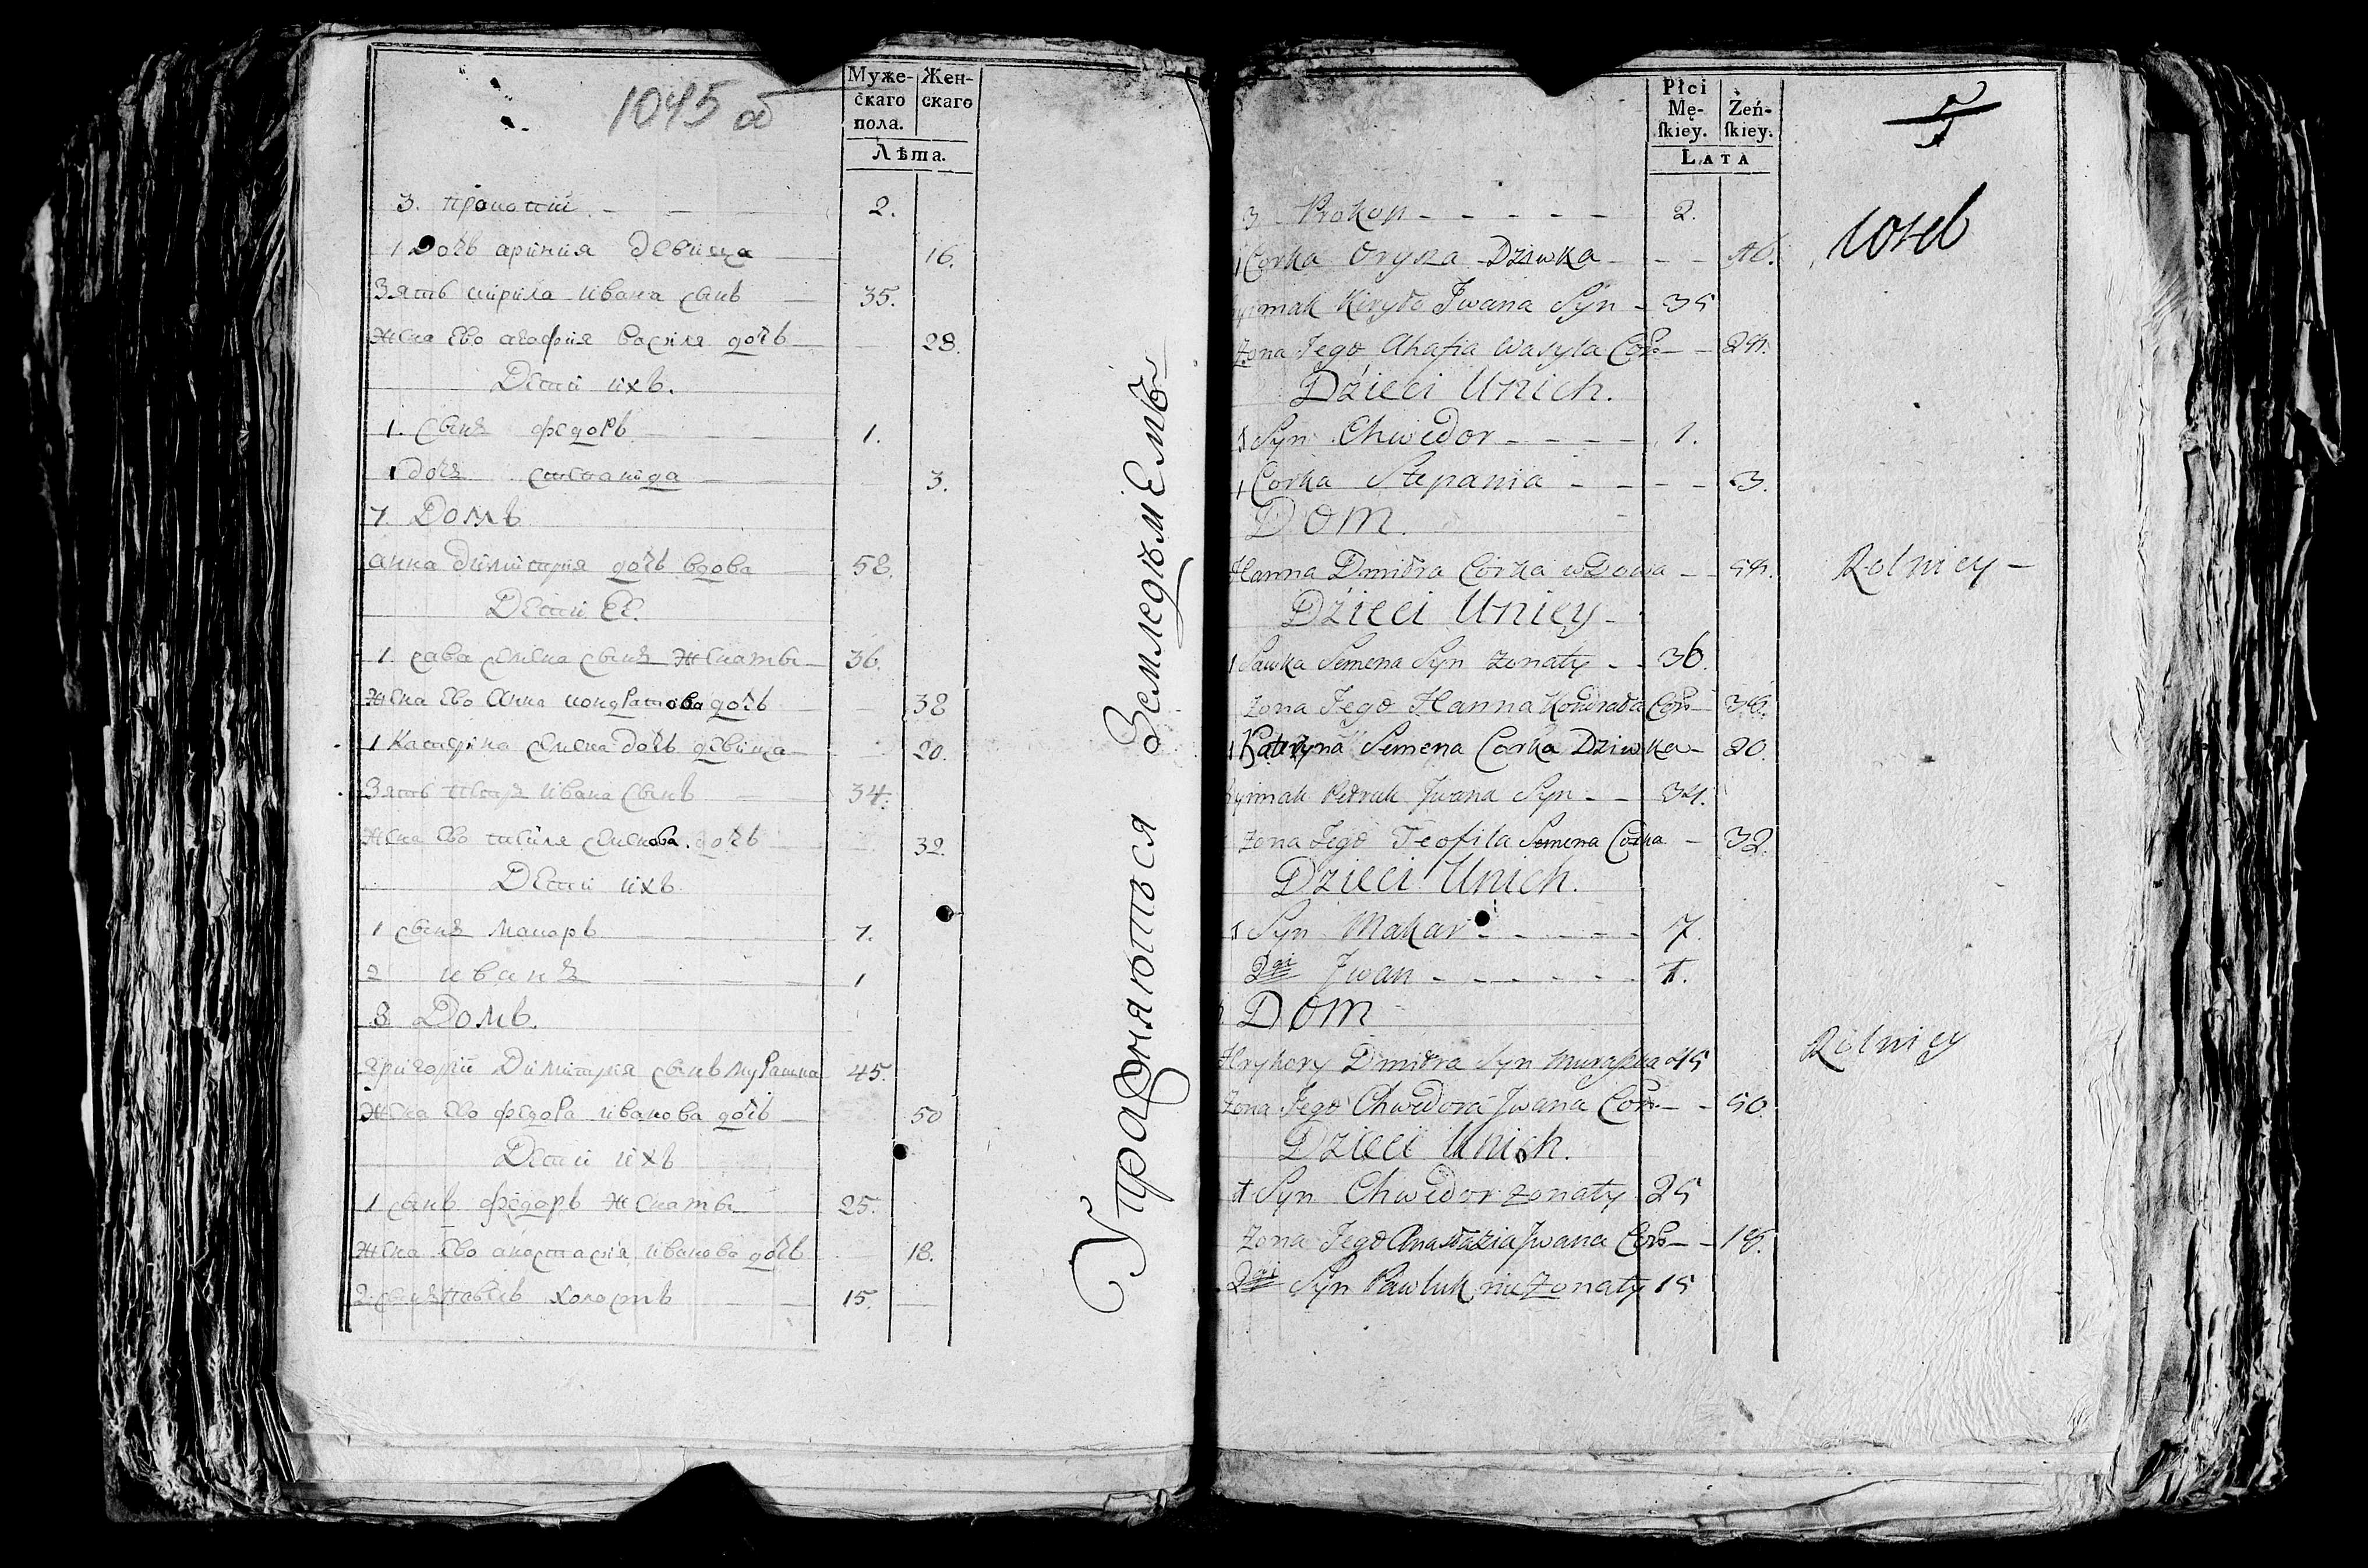 1045 об
Муже- Жен-
скаго скаго
пола.
Лѣта.
3. Прокопій 2.
1 Дочь аріния девица 16.
Зять кирила ивана сынъ 35.
Жена Ево агафия васіля дочь 28.
Дети ихъ.
1. Сынъ федоръ 1.
1 дочь степанида 3.
7. Домъ
анна димитрия дочь вдова 58.
Дети Ее.
1 сава семена сынъ женаты 36.
жена Ево анна кондратова дочь 38
1 Катерина семена дочь девица 20.
Зять петръ ивана сынъ 34.
жена Ево семенова дочь 32.
Дети ихъ
1 сынъ макаръ 7.
2 иванъ 1
8. Домъ.
григорій Димитрія сынъ мурашка 45.
Жена Ево федора иванова дочь 50
Дети ихъ
1 сынъ федоръ женаты 25.
жена Ево анастасія иванова дочь 18.
2. сынъ павелъ холостъ 15.
Упражняються Земледѣліемъ
Płci
Mę- Żeń-
ſkiey. ſkiey.
LATA
3 Prokop 2.
1 Corka Orysza Dziwka 16.
Kiryło Jwana Syn 35
Zona Jego Ahafia Wasyla Cor: 28.
Dzieci Unich.
1 Syn Chwedor 1.
1 Corka Stepania 3.
Dom.
Hanna Dmitra Corka wdowa 58.
Dzieci Uniey
1 Sawka Semena Syn zonaty 36.
Zona Jego Hanna Kondrata Cor: 38.
1 Kateryna Semena Corka Dziwka 20.
Petruk Jwana Syn 34.
Zona Jego Teofila Semena Corka 32.
Dzieci Unich.
1 Syn Makar 7.
2gi Jwan 1.
Dom
Hryhory Dmitra Syn Muraszka 45
Zona Jego Chwedora Jwana Cor: 50.
Dzieci Unich.
1 Syn Chwedor zonaty 25
Zona Jego Anastazia Jwana Cor: 18.
2gi Syn Pawluk niezonaty 15
Rolnicy
Rolnicy